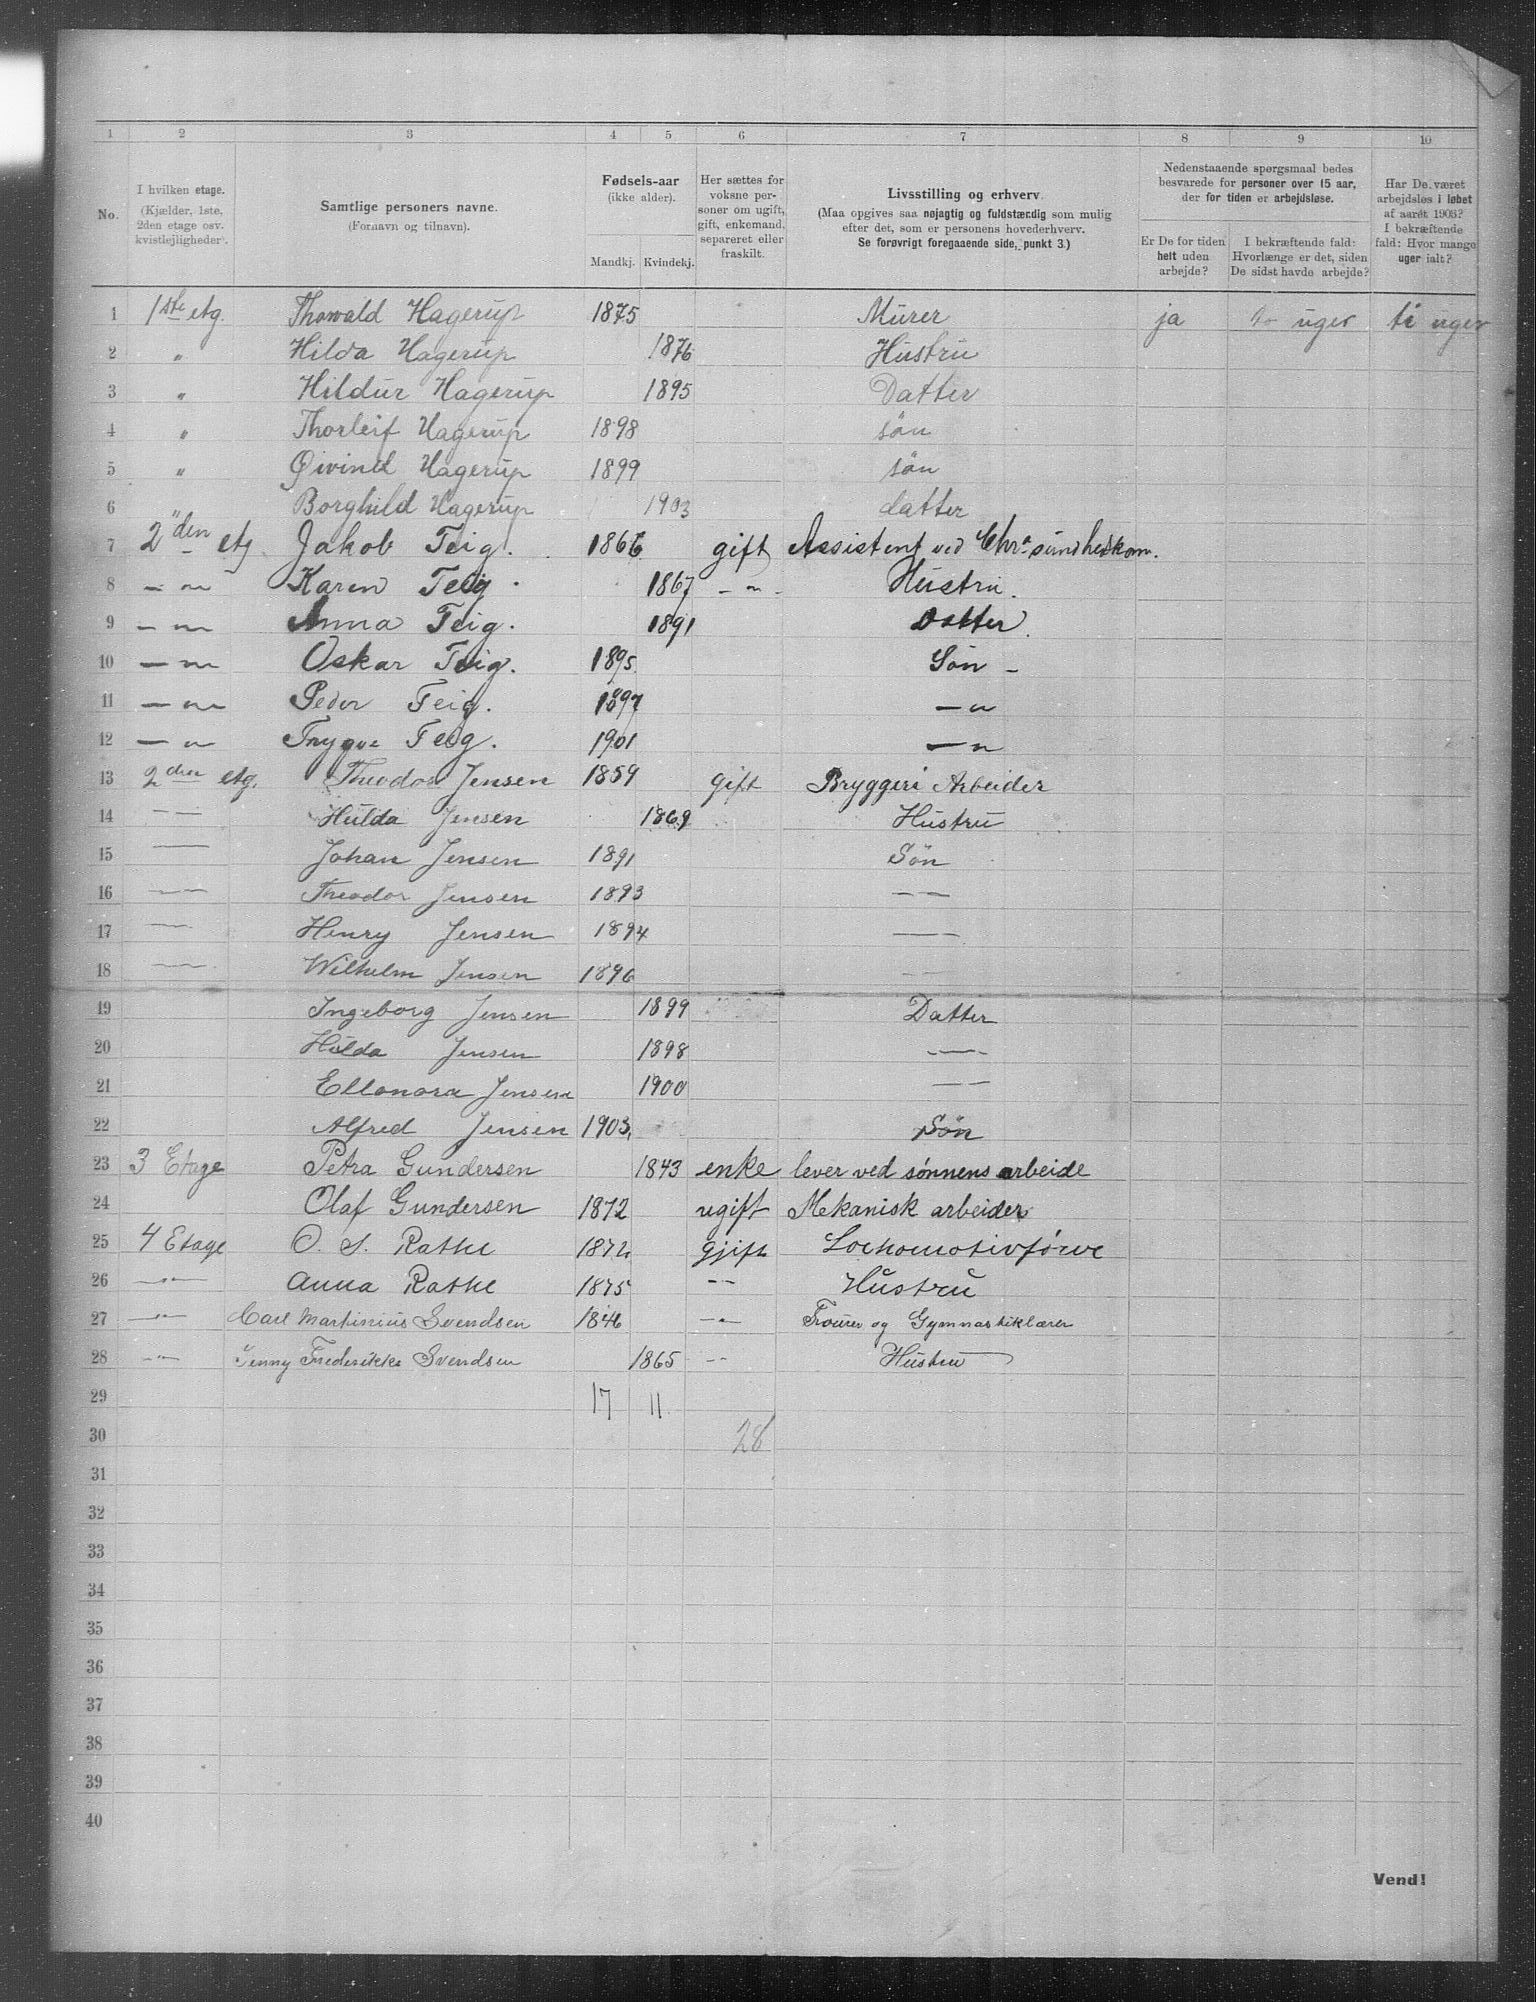 1 2 3 4 5 6 7 8 9 10
No.
I hvilken etage.
(Kjælder, 1ste,
2den etage osv.
kvistlejligheder).
Samtlige personers navne.
(Fornavn og tilnavn).
Fødsels-aar
(ikke alder).
Mandkj. Kvindekj.
Her sættes for
voksne per-
soner om ugift,
gift, enkemand,
separeret eller
fraskilt.
Livsstilling og erhverv.
(Maa opgives saa nøjagtig og fuldstændig som mulig
efter det, som er personens hovederhverv.
Se forøvrigt foregaaende side, punkt 3.)
Nedenstaaende spørgsmaal bedes
besvarede for personer over 15 aar,
der for tiden er arbejdsløse.
Er De for tiden
helt uden
arbejde?
I bekræftende fald:
Hvorlænge er det, siden
De sidst havde arbejde?
Har De været
arbejdsløs i løbet
af aaret 1903?
I bekræftende
fald: Hvor mange
uger ialt?
1 1ste etg. Thorvald Hagerup 1875 Murer ja uger ti uger
2 " Hilda Hagerup 1876 Hustru
3 " Hildur Hagerup 1895 Datter
4 " Thorleif Hagerup 1898 søn
5 " Øivind Hagerup 1899 søn
6 " Borghild Hagerup 1903 datter
7 2den etg. Jakob Teig. 1866 gift Assistent ved Chra sundhedskom.
8 — " — Karen Teig. 1867 — " — Hustru.
9 — " — Anna Teig. 1891 Datter.
10 — " — Oskar Teig. 1895. Søn —
11 — " — Peder Teig. 1897 — "
12 — " Trygve Teig. 1901 — "
13 2den etg. Theodor Jensen 1859 gift Bryggeri Arbeider
14 — — Hulda Jensen 1869 Hustru
15 — — Johan Jensen 1891 Søn
16 — — Theodor Jensen 1893 — —
17 — — Henry Jensen 1894 — —
18 — — Wilhelm Jensen 1896 — —
19 Ingeborg Jensen 1899 Datter
20 Hilda Jensen 1898 — —
21 Ellonora Jensen 1900 — —
22 Alfred Jensen 1903, Søn
23 3 Etage Petra Gundersen 1843 enke lever ved sønnens arbeide
24 Olaf Gundersen 1872 ugift Mekanisk arbeider
25 4 Etage O. S. Rathe 1872 gjift Lochomotivfører
26 — " — Anna Rathe 1875 — — Hustru
27 — " — Carl Martinius Svendsen 1846 — " og Gymnastiklærer
28 — " — Jenny Frederikke Svendsen 1865 — — Hustru
29 17 11
30 28
31
32
33
34
35
36
37
38
39
40
Vend!